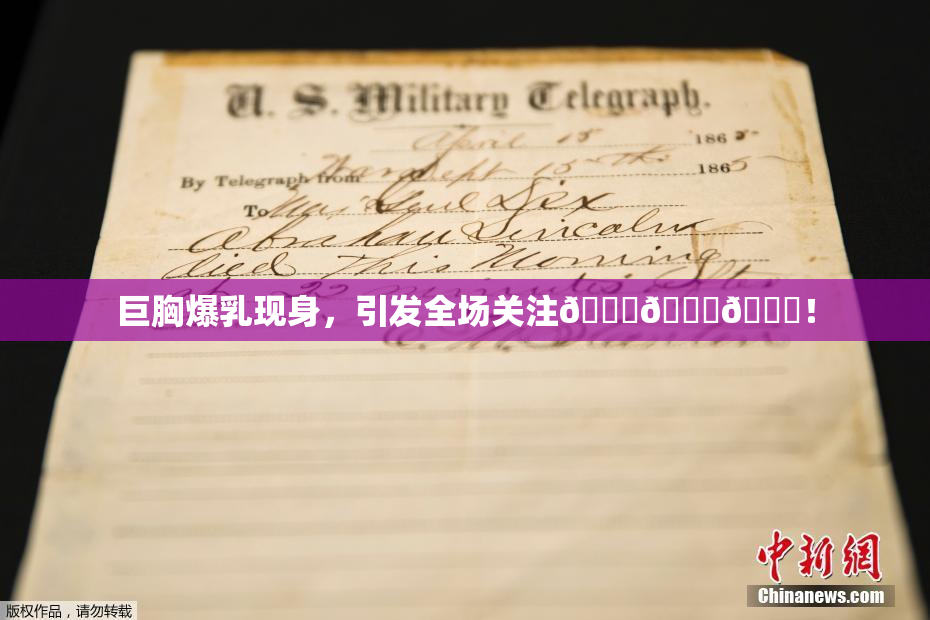 U. S. Military Telegraph.
April 15 1865
By Telegraph from War Dept 15th 1865
To Maj Genl Dix
Abraham Lincoln
died This Morning
at 22 minutes after
巨胸爆乳现身，引发全场关注ð！
E. M. Stanton
中新网
Chinanews.com
版权作品，请勿转载